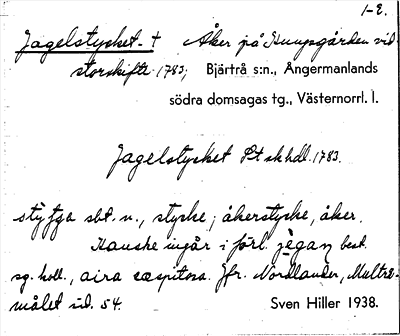 1-2.
Jagelstycket. † Åker på Kungsgården vid
storskifte 1783, Bjärtrå s:n., Ångermanlands
södra domsagas tg., Västernorrl. l.
Jagelstycket St sk hdl. 1783.
sbt. n., stycke; åkerstycke, åker.
Kanske ingår i förl. best.
sg. koll., aira cæspitosa. Jfr. Nordlander, Multrå-
målet sid. 54. Sven Hiller 1938.